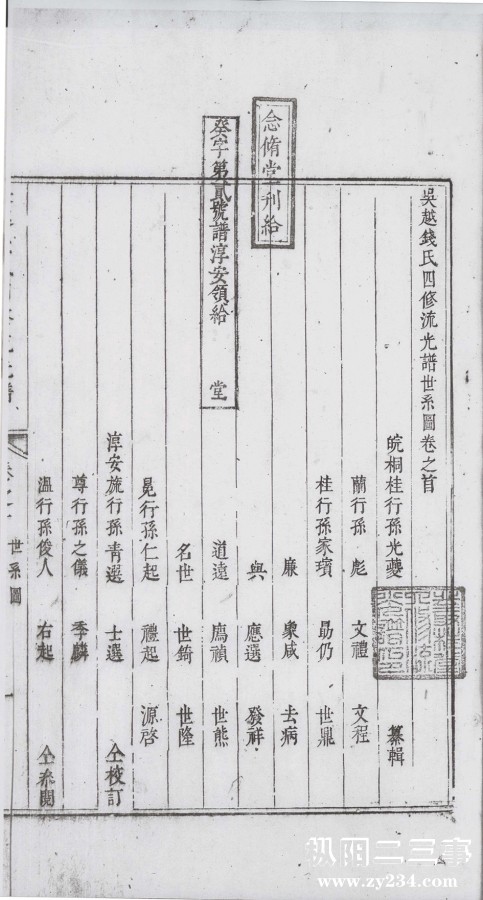 吳越錢氏四修流光譜世系圖卷之首
皖桐桂行孫光夔 纂輯
蘭行孫 彪 文禮 文程
桂行孫家璸 勗仍 世鼎
廉 衆咸 去病
與 應選 發祥
道遠 鷹禎 世熊
名世 世錡 世隆
晃行孫仁起 禮起 源啓
淳安旒行孫青選 士選 仝校訂
尊行孫之儀 季麟
溫行孫俊人 右起 仝叅閱
念脩堂刋給
癸字第貳號譜淳安領給 堂
世系圖
枞阳二三事
www.zy234.com